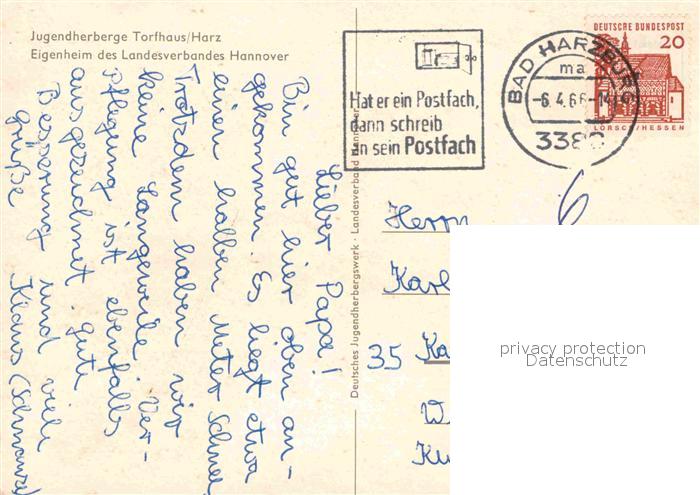 Jugendherberge Torfhaus/Harz
Eigenheim des Landesverbandes Hannover
Lieber Papa!
Bin gut hier oben an-
gekommen. Es liegt etwa
einen halben Meter Schnee
Trotzdem haben wir
keine Langeweile. Ver-
pflegung ist ebenfalls
ausgezeichnet. gute
Besserung und viele
grüße Klaus
Deutsches Jugendherbergswerk · Landesverband Hannover
Hat er ein Postfach,
dann schreib
an sein Postfach
BAD HARZBURG
ma
-6.4.66-14
338
DEUTSCHE BUNDESPOST
20
LORSCH/HESSEN
6
Herrn
Karl
35 Ka
W
Ku
privacy protection
Datenschutz